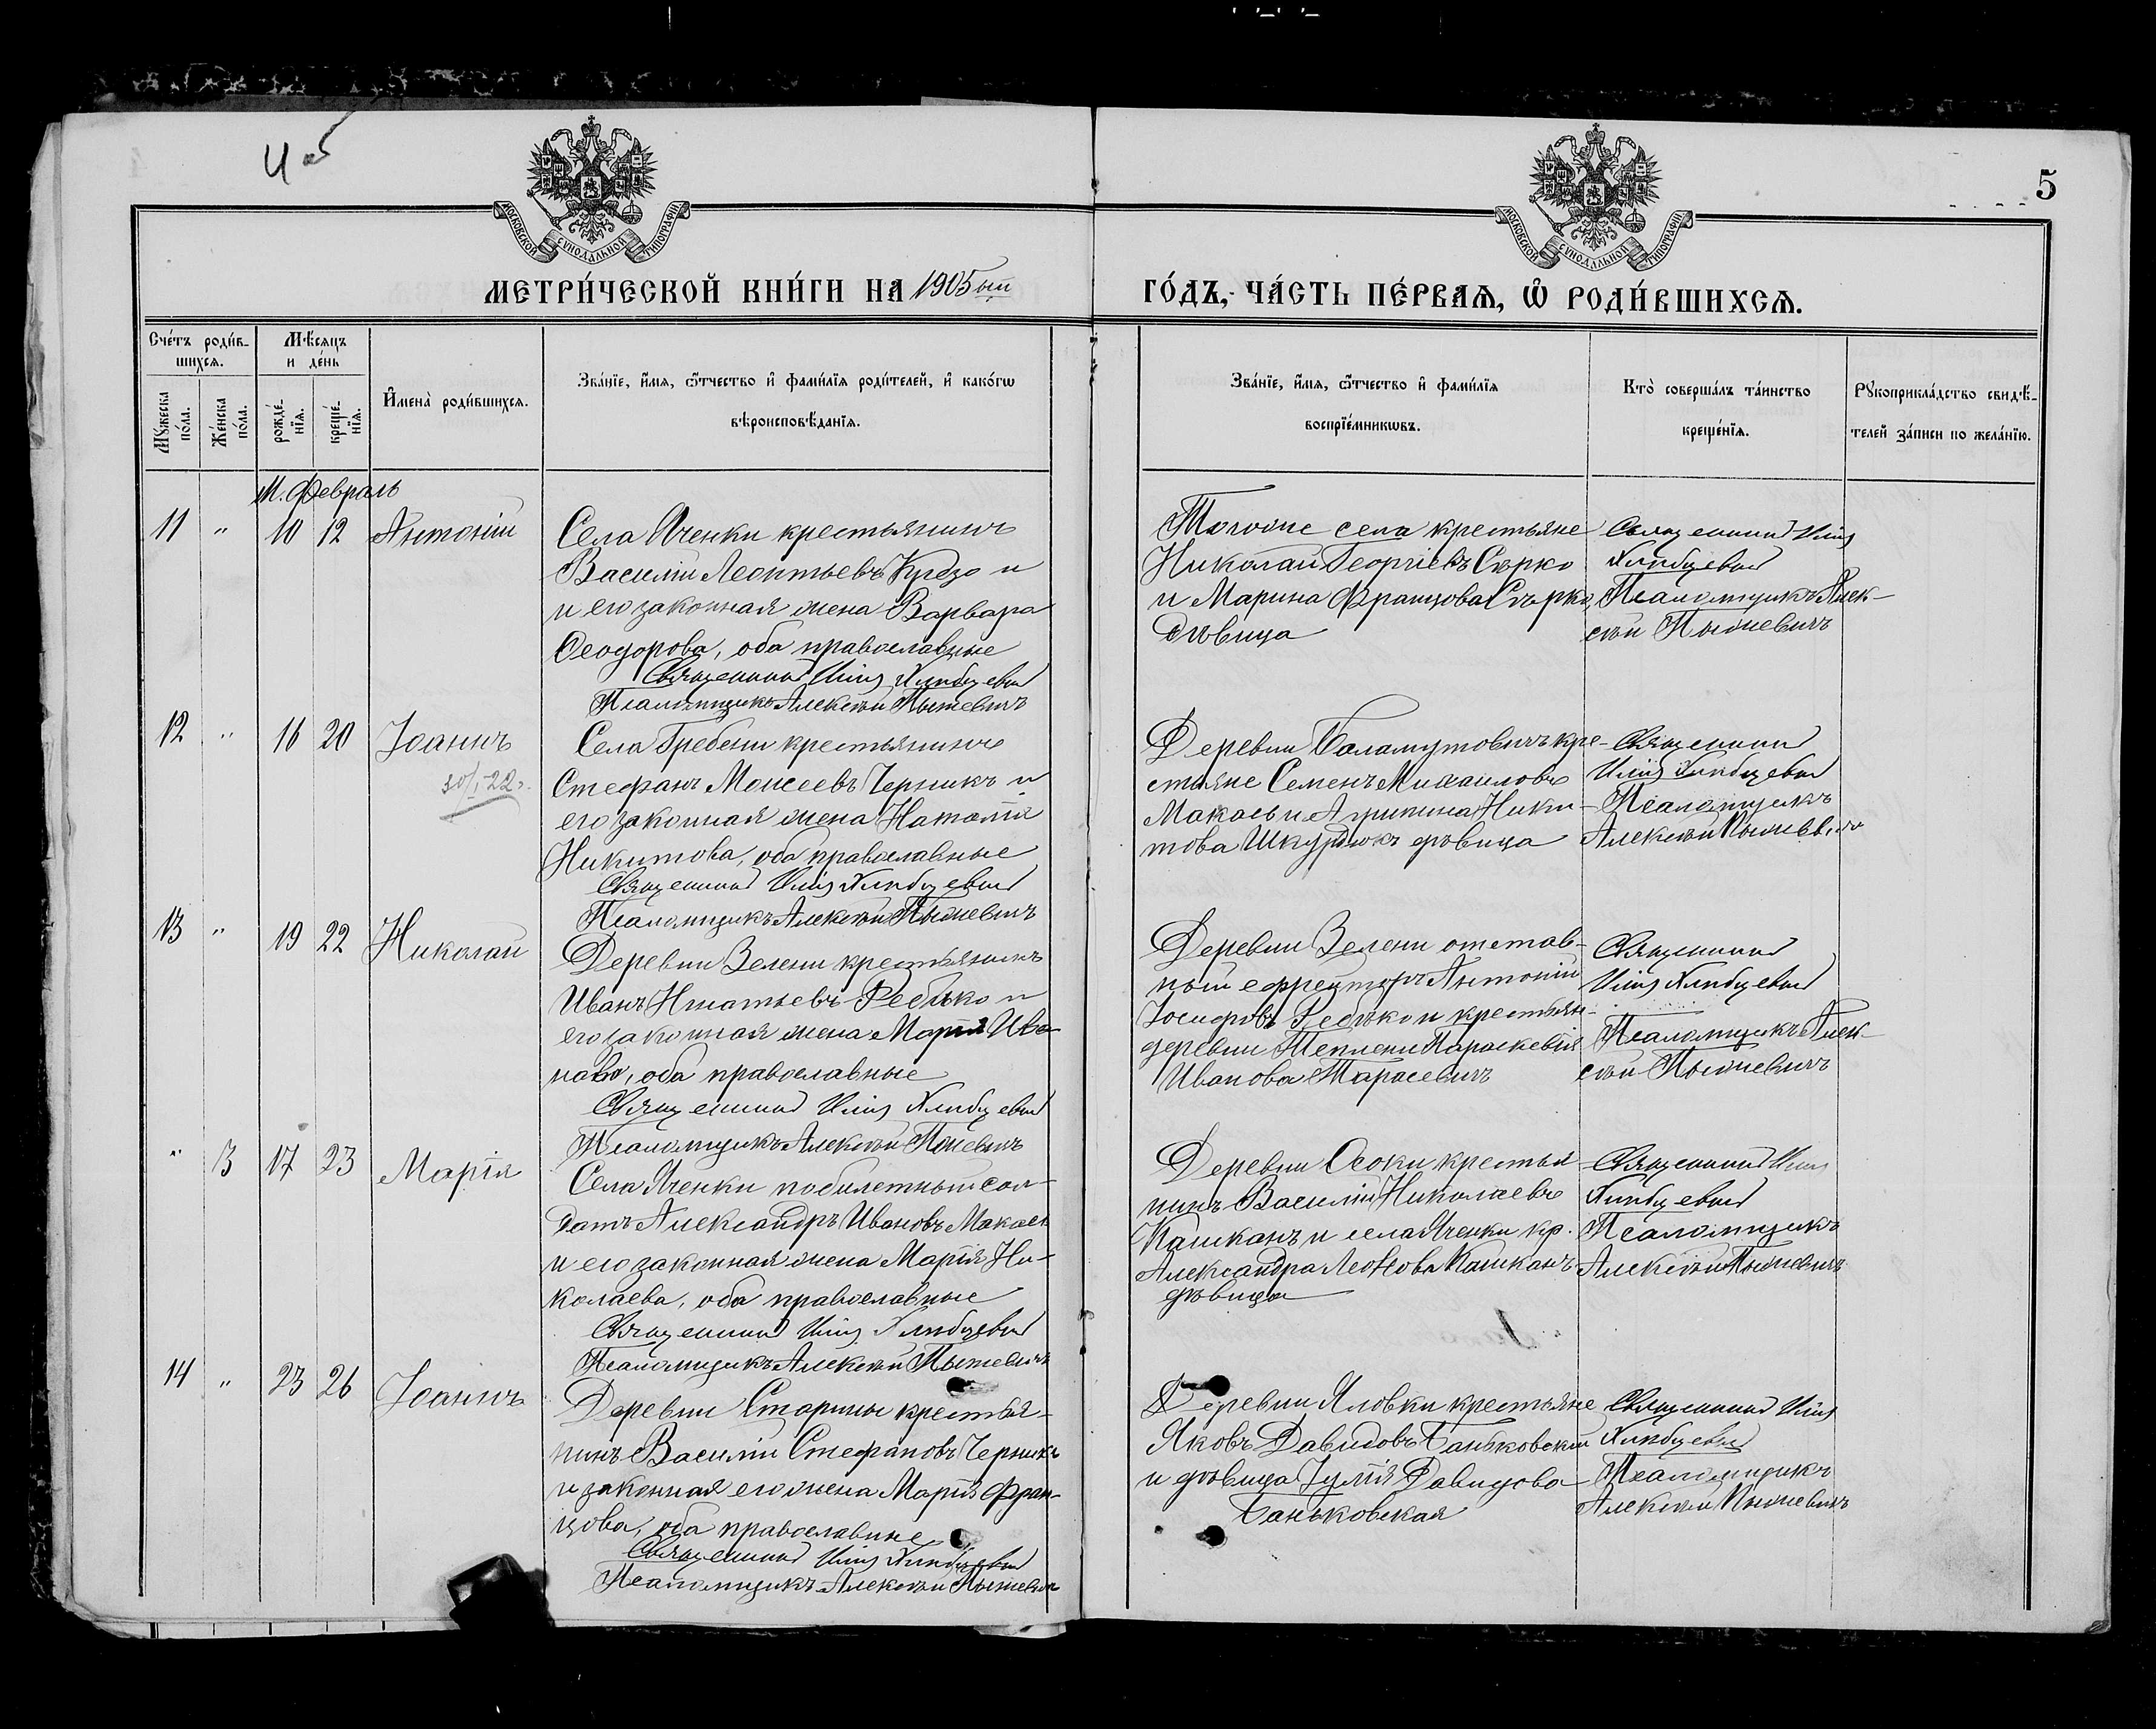 4 об
5
МОСКОВСКОЙ СѴНОДАЛЬНОЙ ТИПОГРАФІИ
МОСКОВСКОЙ СѴНОДАЛЬНОЙ ТИПОГРАФІИ
МЕТРИ́ЧЕСКОЙ КНИ́ГИ НА 1905ый ГО́ДЪ, ЧА́СТЬ ПЕ́РВАѦ, Ѡ РОДИ́ВШИХСѦ.
Сче́тъ роди́в-
шихсѧ.
Мꙋ́жеска
по́ла.
Же́нска
по́ла.
Мѣ́сѧцъ
и де́нь
рожде́-
нїѧ.
креще́-
нїѧ.
И҆мена̀ роди́вшихсѧ.
Зва́нїе, и҆́мѧ, ѻ҆́тчество и҆ фами́лїѧ роди́телей, и҆ како́гѡ
вѣроисповѣ́данїѧ.
Зва́нїе, и҆́мѧ, ѻ҆́тчество и҆ фами́лїѧ
воспрїе́мникѡвъ.
Кто̀ соверша́лъ та́инство
креще́нїѧ.
Рꙋкоприкла́дство свидѣ́-
телей за́писи по жела́нїю.
М. Февраль
11 " 10 12 Антоній
Села Яченки крестьянинъ
Василій Леонтьевъ и
и его законная жена Варвара
Ѳеодорова, оба православные
Священникъ Илія
Псаломщикъ Алексѣй Пышевичъ
Того же села крестьяне
Николай Георгіевъ Сырко
и Марина Францова Сырко,
дѣвица
Священникъ Илія
Псаломщикъ Алек-
сѣй Пышевичъ
12 " 16 20 Іоаннъ
30/I 22 г.
Села Гребени крестьянинъ
Стефанъ Моисеевъ Черникъ и
его законная жена Наталія
Никитова, оба православные
Священникъ Илія
Псаломщикъ Алексѣй Пышевичъ
Деревни Баламутовичъ кре-
стьяне Семенъ Михаиловъ
Макаевъ и Агрипина Ники-
това Шкурдюкъ дѣвица
Священникъ
Илія
Псаломщикъ
Алексѣй Пышевичъ
13 " 19 22 Николай
Деревни Зелени крестьянинъ
Иванъ Игнатьевъ Ребѣко и
его законная жена Марія Ива-
нова, оба православные
Священникъ Илія
Псаломщикъ Алексѣй
Деревни Зелени отстав-
ной ефрейторъ Антоній
Іосифовъ Ребѣко и крестьян-
деревни Теплени Параскевія
Иванова Тарасевичъ
Священникъ
Илія
Псаломщикъ Алек-
сѣй Пышевичъ
" 13 17 23 Марія
Села Яченки побилетный сол-
датъ Александръ Ивановъ Макаевъ
и его законная жена Марія Ни-
колаева, оба православные
Священникъ Илія
Псаломщикъ Алексѣй Пышевичъ
Деревни Осоки крестья-
нинъ Василій Николаевъ
Кашканъ и села Яченки кр.
Александра Леонова Кашканъ
дѣвица
Священникъ Илія
Псаломщикъ
Алексѣй Пышевичъ
14 " 23 26 Іоаннъ
Деревни Старины крестья-
нинъ Василій Стефановъ Черникъ
и законная его жена Марія Фран-
цова, оба православные
Священникъ Илія
Псаломщикъ Алексѣй Пышевичъ
Деревни Яловки крестьяне
Яковъ Давидовъ Баньковскій
и дѣвица Іулія Давидова
Баньковская
Священникъ Илія
Псаломщикъ
Алексѣй Пышевичъ